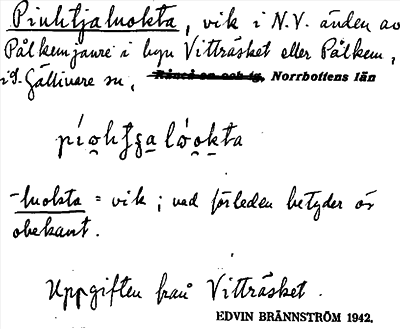 Piuhtjaluokta, vik i N.V. änden av
Pålkemjaure i byn Vitträsket eller Pålkem,
i Gällivare sn, Norrbottens län
-luokta = vik; vad förleden betyder är
obekant.
Uppgiften från Vitträsket.
EDVIN BRÄNNSTRÖM 1942.